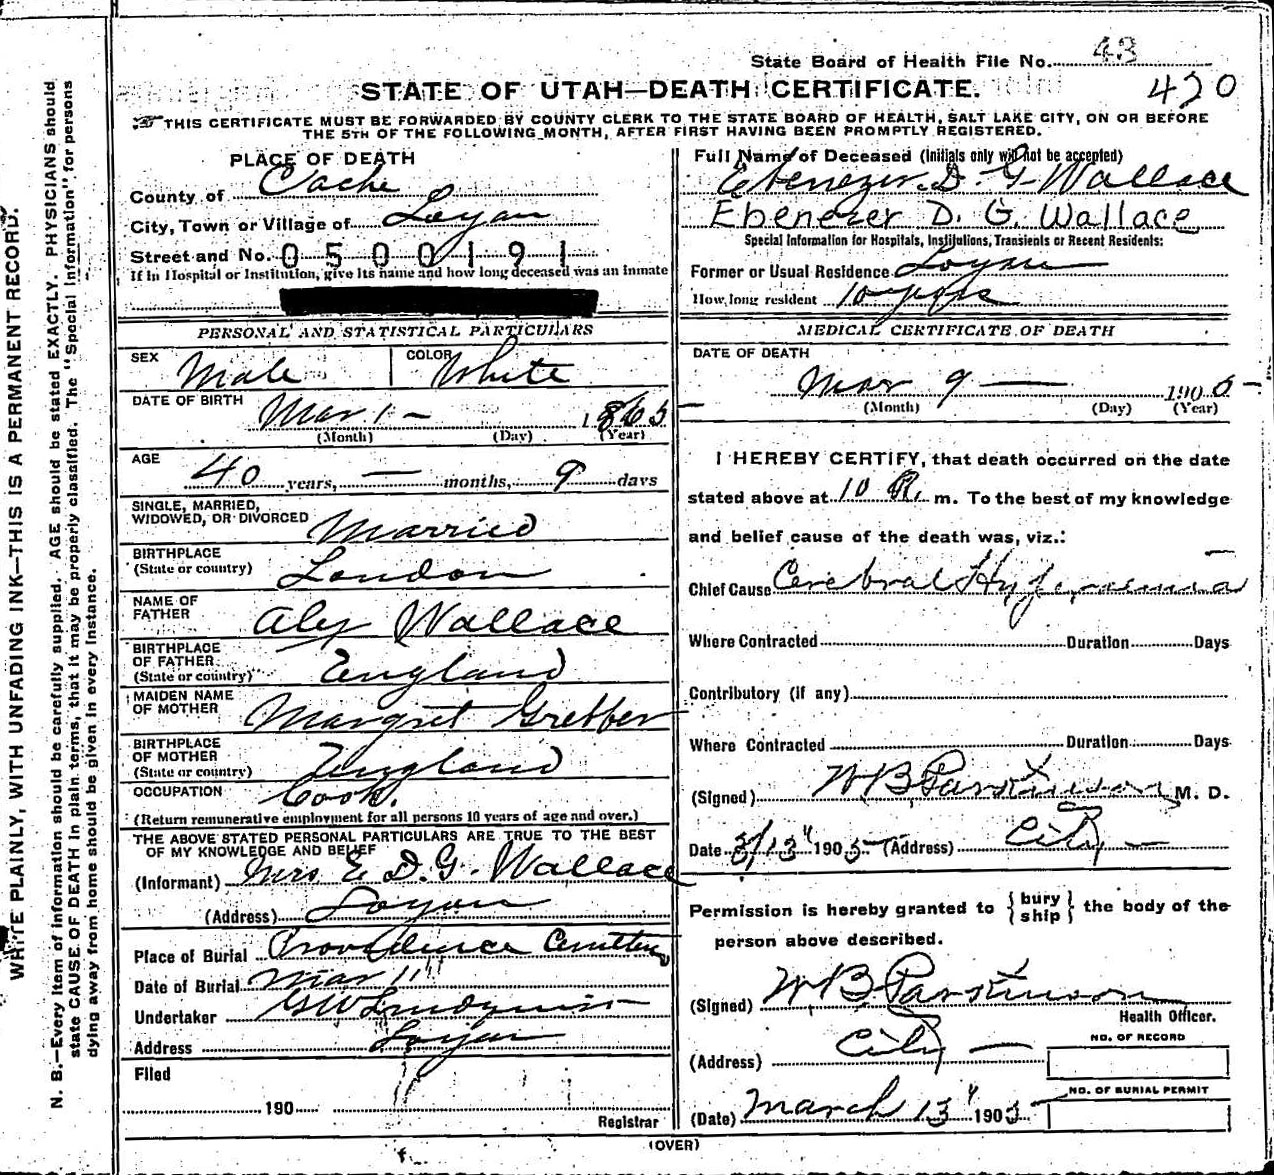 WRITE PLAINLY, WITH UNFADING INK—THIS IS A PERMANENT RECORD.
N. B.—Every item of information should be carefully supplied. AGE should be stated EXACTLY. PHYSICIANS should
state CAUSE OF DEATH in plain terms, that it may be properly classified. The "Special Information" for persons
dying away from home should be given in every instance.
State Board of Health File No. 43
STATE OF UTAH—DEATH CERTIFICATE.
420
THIS CERTIFICATE MUST BE FORWARDED BY COUNTY CLERK TO THE STATE BOARD OF HEALTH, SALT LAKE CITY, ON OR BEFORE
THE 5TH OF THE FOLLOWING MONTH, AFTER FIRST HAVING BEEN PROMPTLY REGISTERED.
PLACE OF DEATH
County of Cache
City, Town or Village of Logan
Street and No. 0500191
If in Hospital or Institution, give its name and how long deceased was an Inmate
PERSONAL AND STATISTICAL PARTICULARS
SEX Male COLOR White
DATE OF BIRTH Mar 1 — 1865
(Month) (Day) (Year)
AGE 40 years, — months, 9 days
SINGLE, MARRIED,
WIDOWED, OR DIVORCED Married
BIRTHPLACE
(State or country) London
NAME OF
FATHER Alex Wallace
BIRTHPLACE
OF FATHER
(State or country) England
MAIDEN NAME
OF MOTHER Margret
BIRTHPLACE
OF MOTHER
(State or country) England
OCCUPATION Cook.
(Return remunerative employment for all persons 10 years of age and over.)
THE ABOVE STATED PERSONAL PARTICULARS ARE TRUE TO THE BEST
OF MY KNOWLEDGE AND BELIEF
(Informant) Mrs E. D. G. Wallace
(Address) Logan
Place of Burial Providence Cemetery
Date of Burial Mar 11"
Undertaker GW Lindquist
Address Logan
Filed
190
Registrar
Full Name of Deceased (Initials only will not be accepted)
Ebenezer. D. G. Wallace
Ebenezer D. G. Wallace
Special Information for Hospitals, Institutions, Transients or Recent Residents:
Former or Usual Residence Logan
How long resident 10
MEDICAL CERTIFICATE OF DEATH
DATE OF DEATH
Mar 9 — 1905
(Month) (Day) (Year)
I HEREBY CERTIFY, that death occurred on the date
stated above at 10 m. To the best of my knowledge
and belief cause of the death was, viz.:
Chief Cause Cerebral Hyperemia
Where Contracted Duration Days
Contributory (if any)
Where Contracted Duration Days
(Signed) W B Parkinson M. D.
Date 3/13" 1905 (Address) City —
Permission is hereby granted to {bury ship} the body of the
person above described.
(Signed) W B Parkinson
Health Officer.
(Address) City —
NO. OF RECORD
NO. OF BURIAL PERMIT
(Date) March 13" 1905
(OVER)